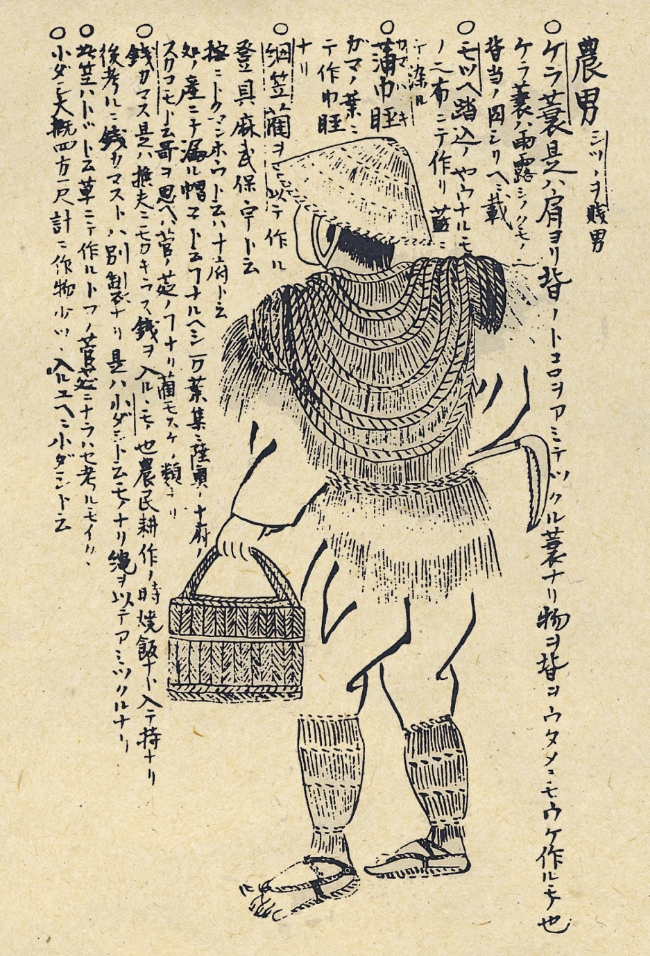 農男 シツノヲ賤男
○ケラ蓑是ハ肩ヨリ背ノトコロヲアミテツクル蓑ナリ物ヲ背ヲウタメニモウケ作ルモノ也
ケラ蓑ハ雨露シノクモノニ
背当ノ図シリヘニ載
○モツヘ踏込ノヤウナルモ
ノ二布ニテ作リ藍ニ
テ染ル
○蒲巾脛 ガマハヾキ
ガマノ葉ニ
テ作巾脛
ナリ
○綱笠藺ヲ以テ作ル
登具麻武保宇ト云
按ニトクマンホウト云ハ十府ト云
処ノ産ニテ編ル帽ヱトエフナルヘシ万葉集ニ陸奥ノ十府ノ
スカコモト云哥ヲ思ヘハ菅ノ莚ノフナリ藺モスケノ類ナリ
○銭カマス是ハ樵夫ニモカキラス銭ヲ入ルモノ也農民耕作ノ時焼飯ナト入テ持ナリ
後考ルニ銭カマストハ別製ナリ是ハ小ダシト云モノナリ縄ヲ以テアミツクルナリ
○此笠ハトットト云草ニテ作ルトフノ菅莚ニナラハセ考ルモイリ、
○小ダシ大概四方一尺計ニ作物少ツヽ入ルユヘニ小ダシト云